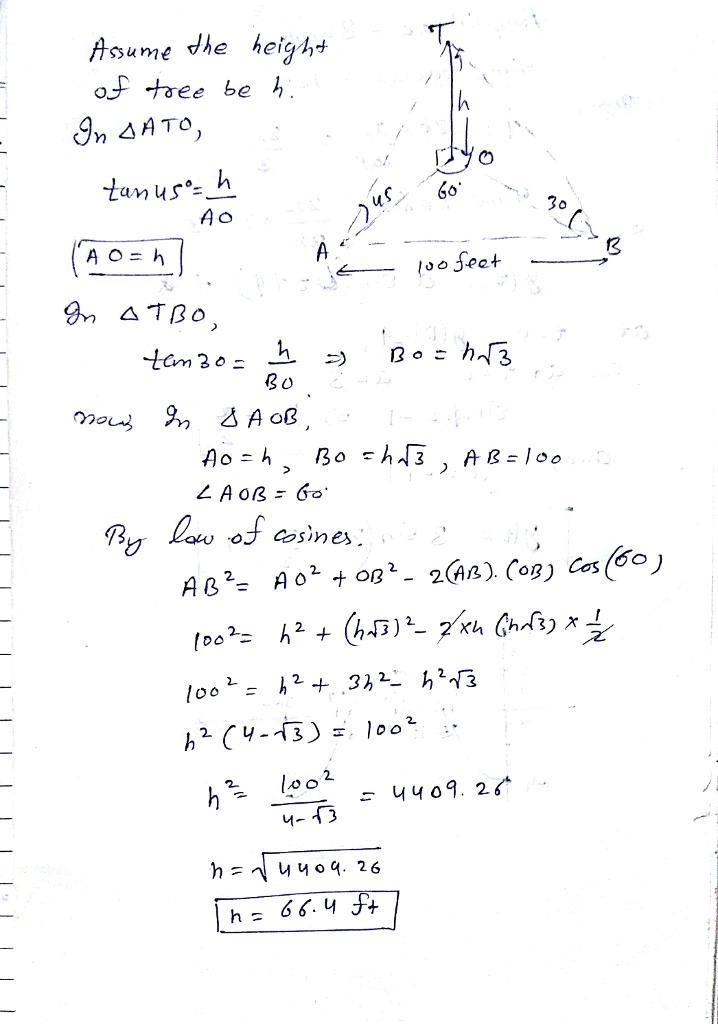 Assume the height
of tree be h.
In ΔATO,
tan45° = h/AO
AO = h
In ΔTBO,
tan30 = h/BO ⇒ BO = h√3
now In ΔAOB,
AO = h, BO = h√3, AB = 100
∠AOB = 60°
By law of cosines.
AB² = AO² + OB² - 2(AB).(OB) cos(60)
100² = h² + (h√3)² - 2×h(h√3) × 1/2
100² = h² + 3h² - h²√3
h²(4-√3) = 100²
h² = 100²/4-√3 = 4409.26
h = √4409.26
h = 66.4 ft
T
h
O
60°
45
30
A
B
100 feet